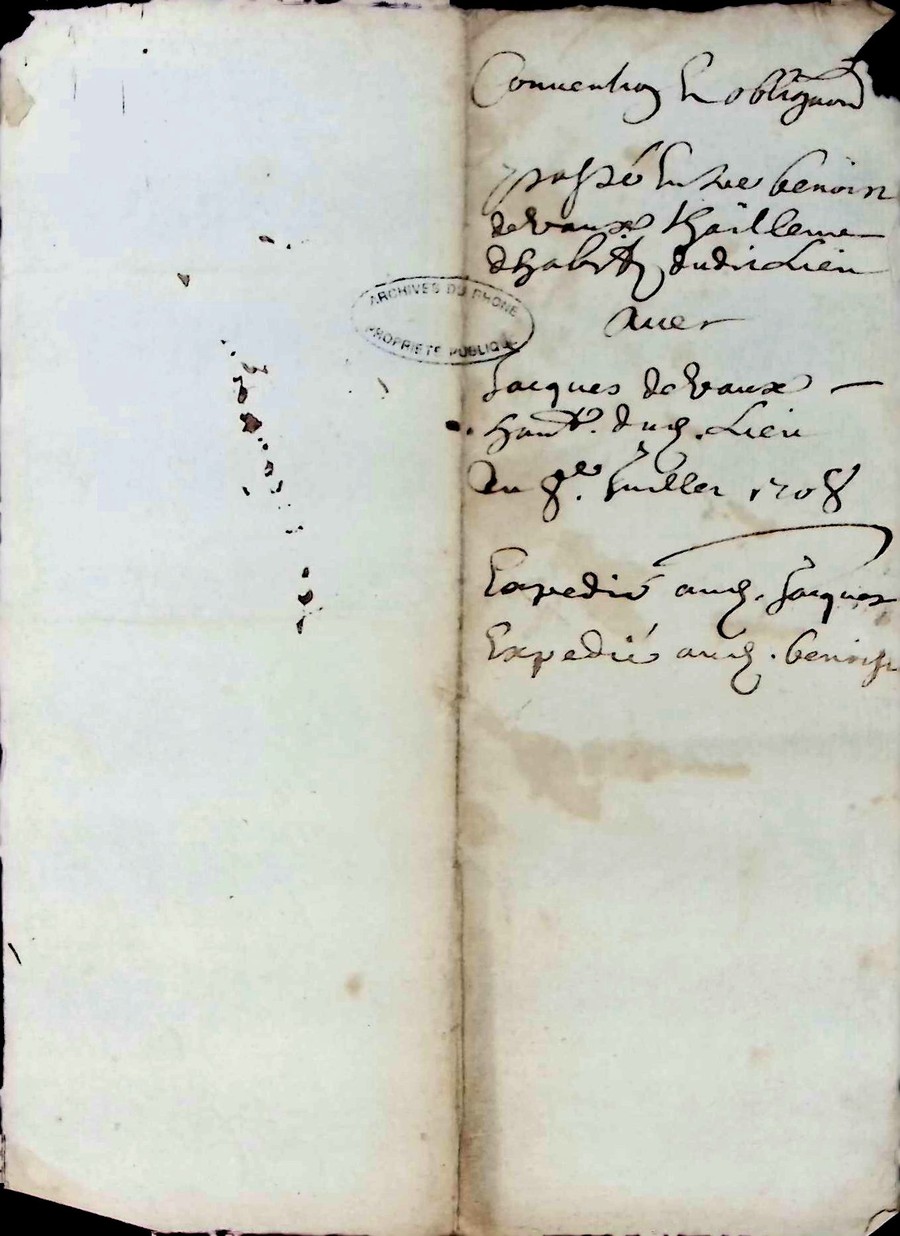 Convention Et obligaon
passé Entre benoist
devaux
dhabit dudit Lieu
Avec
Jacques devaux
hant. dud. Lieu
du 8e. Juillet 1708
Expedié aud. Jacques
Expedié aud. benoist
ARCHIVES DU RHONE
PROPRIETE PUBLIQUE